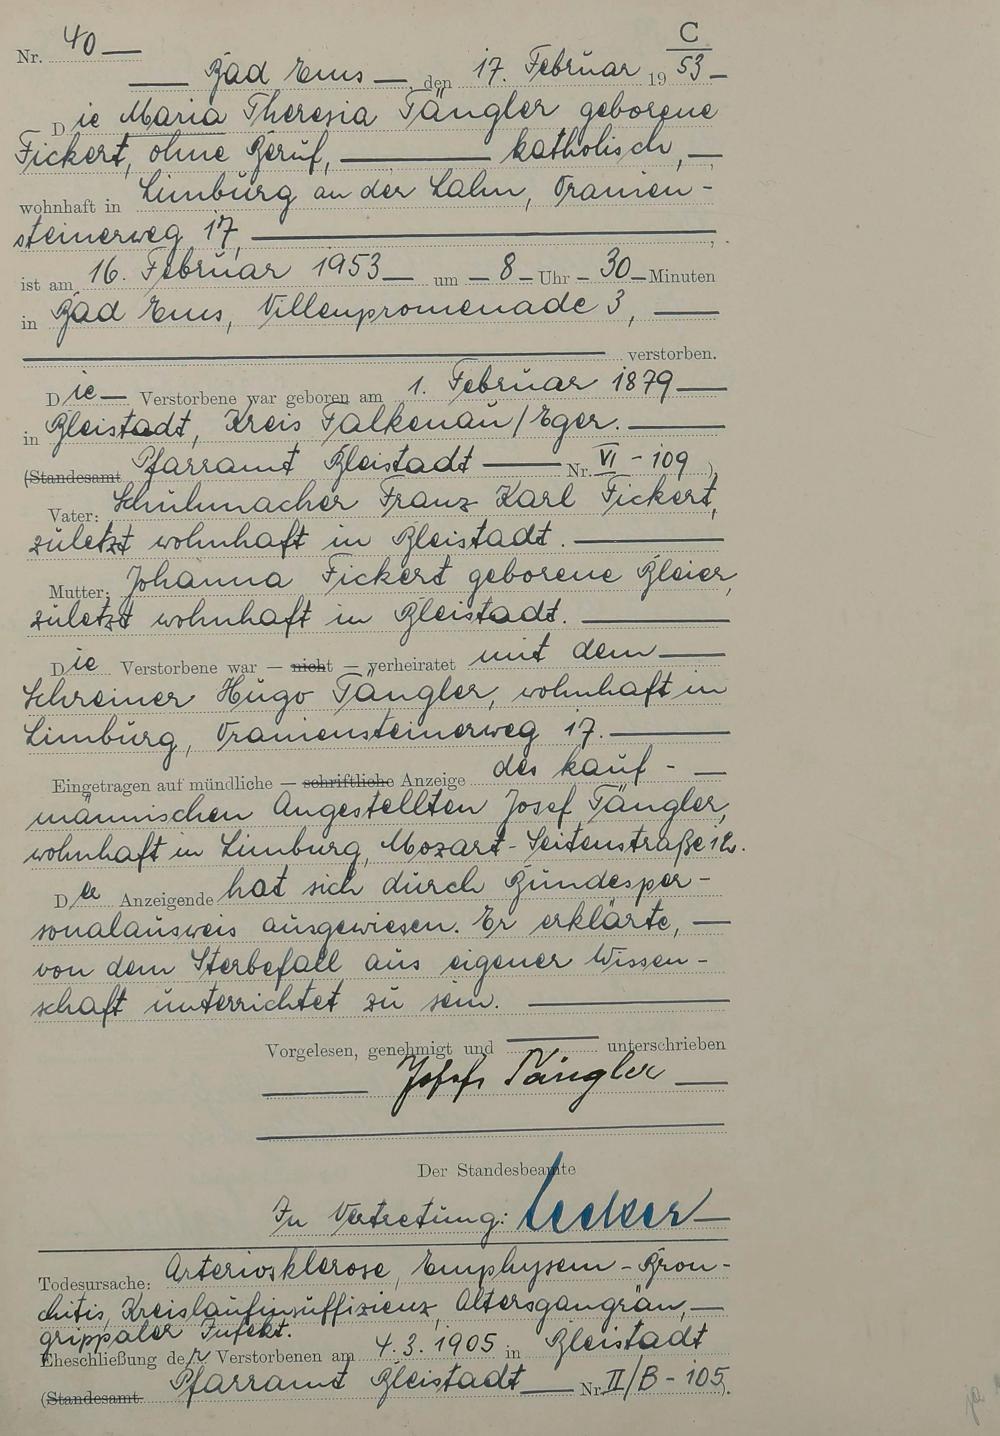 C
Nr. 40
Bad Ems, den 17. Februar 1953
Die Maria Theresia Tängler geborene
Fickert, ohne Beruf, katholisch,
wohnhaft in Limburg an der Lahn, Oranien-
steinerweg 17,
ist am 16. Februar 1953 um 8 Uhr 30 Minuten
in Bad Ems, Villenpromenade 3,
verstorben.
Die Verstorbene war geboren am 1. Februar 1879
in Bleistadt, Kreis Falkenau/Eger.
(Standesamt Pfarramt Bleistadt Nr. VI - 109)
Vater: Schuhmacher Franz Karl Fickert,
zuletzt wohnhaft in Bleistadt.
Mutter: Johanna Fickert geborene Bleier,
zuletzt wohnhaft in Bleistadt.
Die Verstorbene war — nicht — verheiratet mit dem
Schreiner Hugo Tängler, wohnhaft in
Limburg, Oraniensteinerweg 17.
Eingetragen auf mündliche — schriftliche Anzeige des kauf-
männischen Angestellten Josef Tängler,
wohnhaft in Limburg, Mozart-Seitenstraße
Der Anzeigende hat sich durch Bundesper-
sonalausweis ausgewiesen. Er erklärte,
von dem Sterbefall aus eigener Wissen-
schaft unterrichtet zu sein.
Vorgelesen, genehmigt und unterschrieben
Josef Tängler
Der Standesbeamte
In Vertretung:
Todesursache: Arteriosklerose, Emphysem-Bron-
chitis, Kreislaufinsuffizienz, Altersgangrän,
grippaler Infekt.
Eheschließung der Verstorbenen am 4.3.1905 in Bleistadt
(Standesamt Pfarramt Bleistadt Nr. II/B - 105).